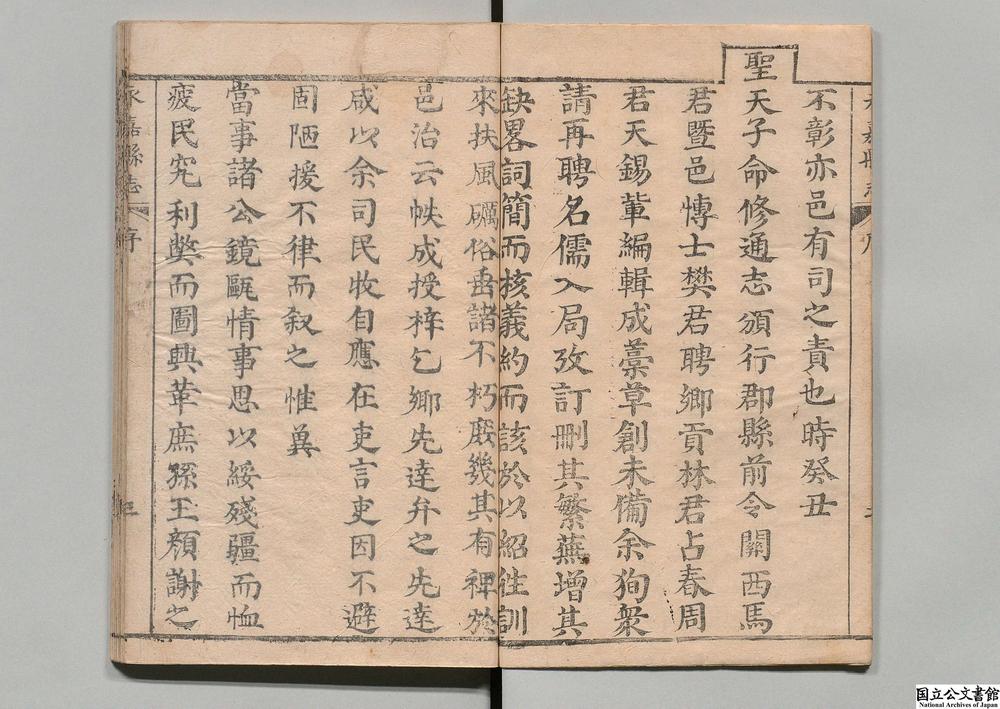 不彰亦邑有司之責也時癸丑
聖天子命修通志頒行郡縣前令關西馬
君暨邑博士樊君聘鄉貢林君占春周
君天錫輩編輯成藁草創未備余狥衆
請再聘名儒入局攷訂刪其繁蕪增其
缺畧詞簡而核義約而該於以紹往訓
來扶風礪俗垂諸不朽庶幾其有裨於
邑治云帙成授梓乞鄉先達弁之先達
咸以余司民收自應在吏言吏因不避
固陋援不律而叙之惟兾
當事諸公鏡甌情事思以綏殘疆而恤
疲民究利獘而圖興革庶孫王顏謝之
永嘉縣志
序
三
国立公文書館
National Archives of Japan